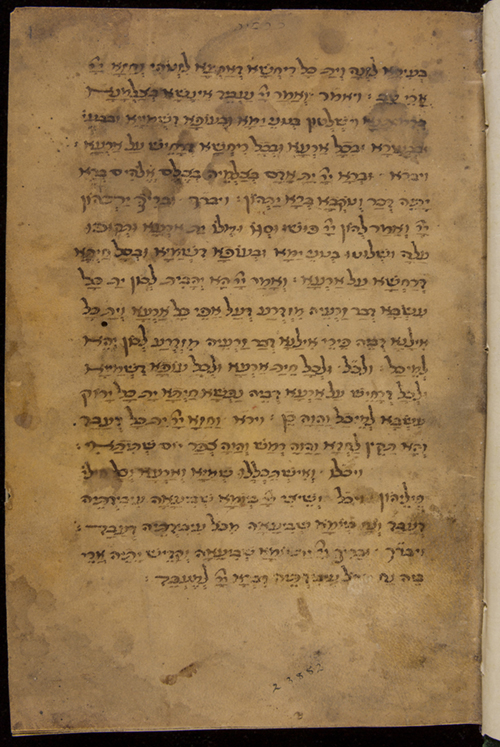 בעירא לזנה וית כל ריחשא דארעא לזנוהי וחזא יי
ארי טב : ויאמר ואמר יי נעביד אינשא בצלמנא
וישלטון בנוני ימא ובעופא דשמיא
ובבעירא ובכל ארעא ובכל ריחשא דרחיש על ארעא :
ויברא וברא יי ית אדם בצלמיה בצלם אלהים ברא
יתיה דכר ונוקבא ברא יתהון : ויברך ובריך יתהון
יי ואמר להון יי פושו וסגו ומלו ית ארעא ותקופו
עלה ושלוטו בנוני ימא ובעופא דשמיא ובכל חיתא
דרחשא על ארעא : ואמר יי הא יהבית לכון ית כל
עשבא דבר זרעיה מזדרע דעל אפי כל ארעא וית כל
אילנא דביה פירי אילנא דבר זרעיה מזדרע לכון יהא
למיכל : ולכל ולכל חית ארעא ולכל עופא דשמיא
ולכל דרחיש על ארעא דביה נפשא חיתא ית כל ירוק
עישבא למיכל והוה כן : וירא וחזא יי ית כל דעבד
והא תקין לחדא והוה רמש והוה צפר יום
ויכלו ואישתכללו שמיא וארעא וכל
חיליהון ויכל ושיצי יי ביומא שביעאה עיבידתיה
דעבד ונח ביומא שביעאה מכל עיבידתיה דעבד :
ויברך ובריך יי יומא שביעאה וקדיש יתיה ארי
ביה נח מכל עיבידתיה דברא יי למעבד :
23552